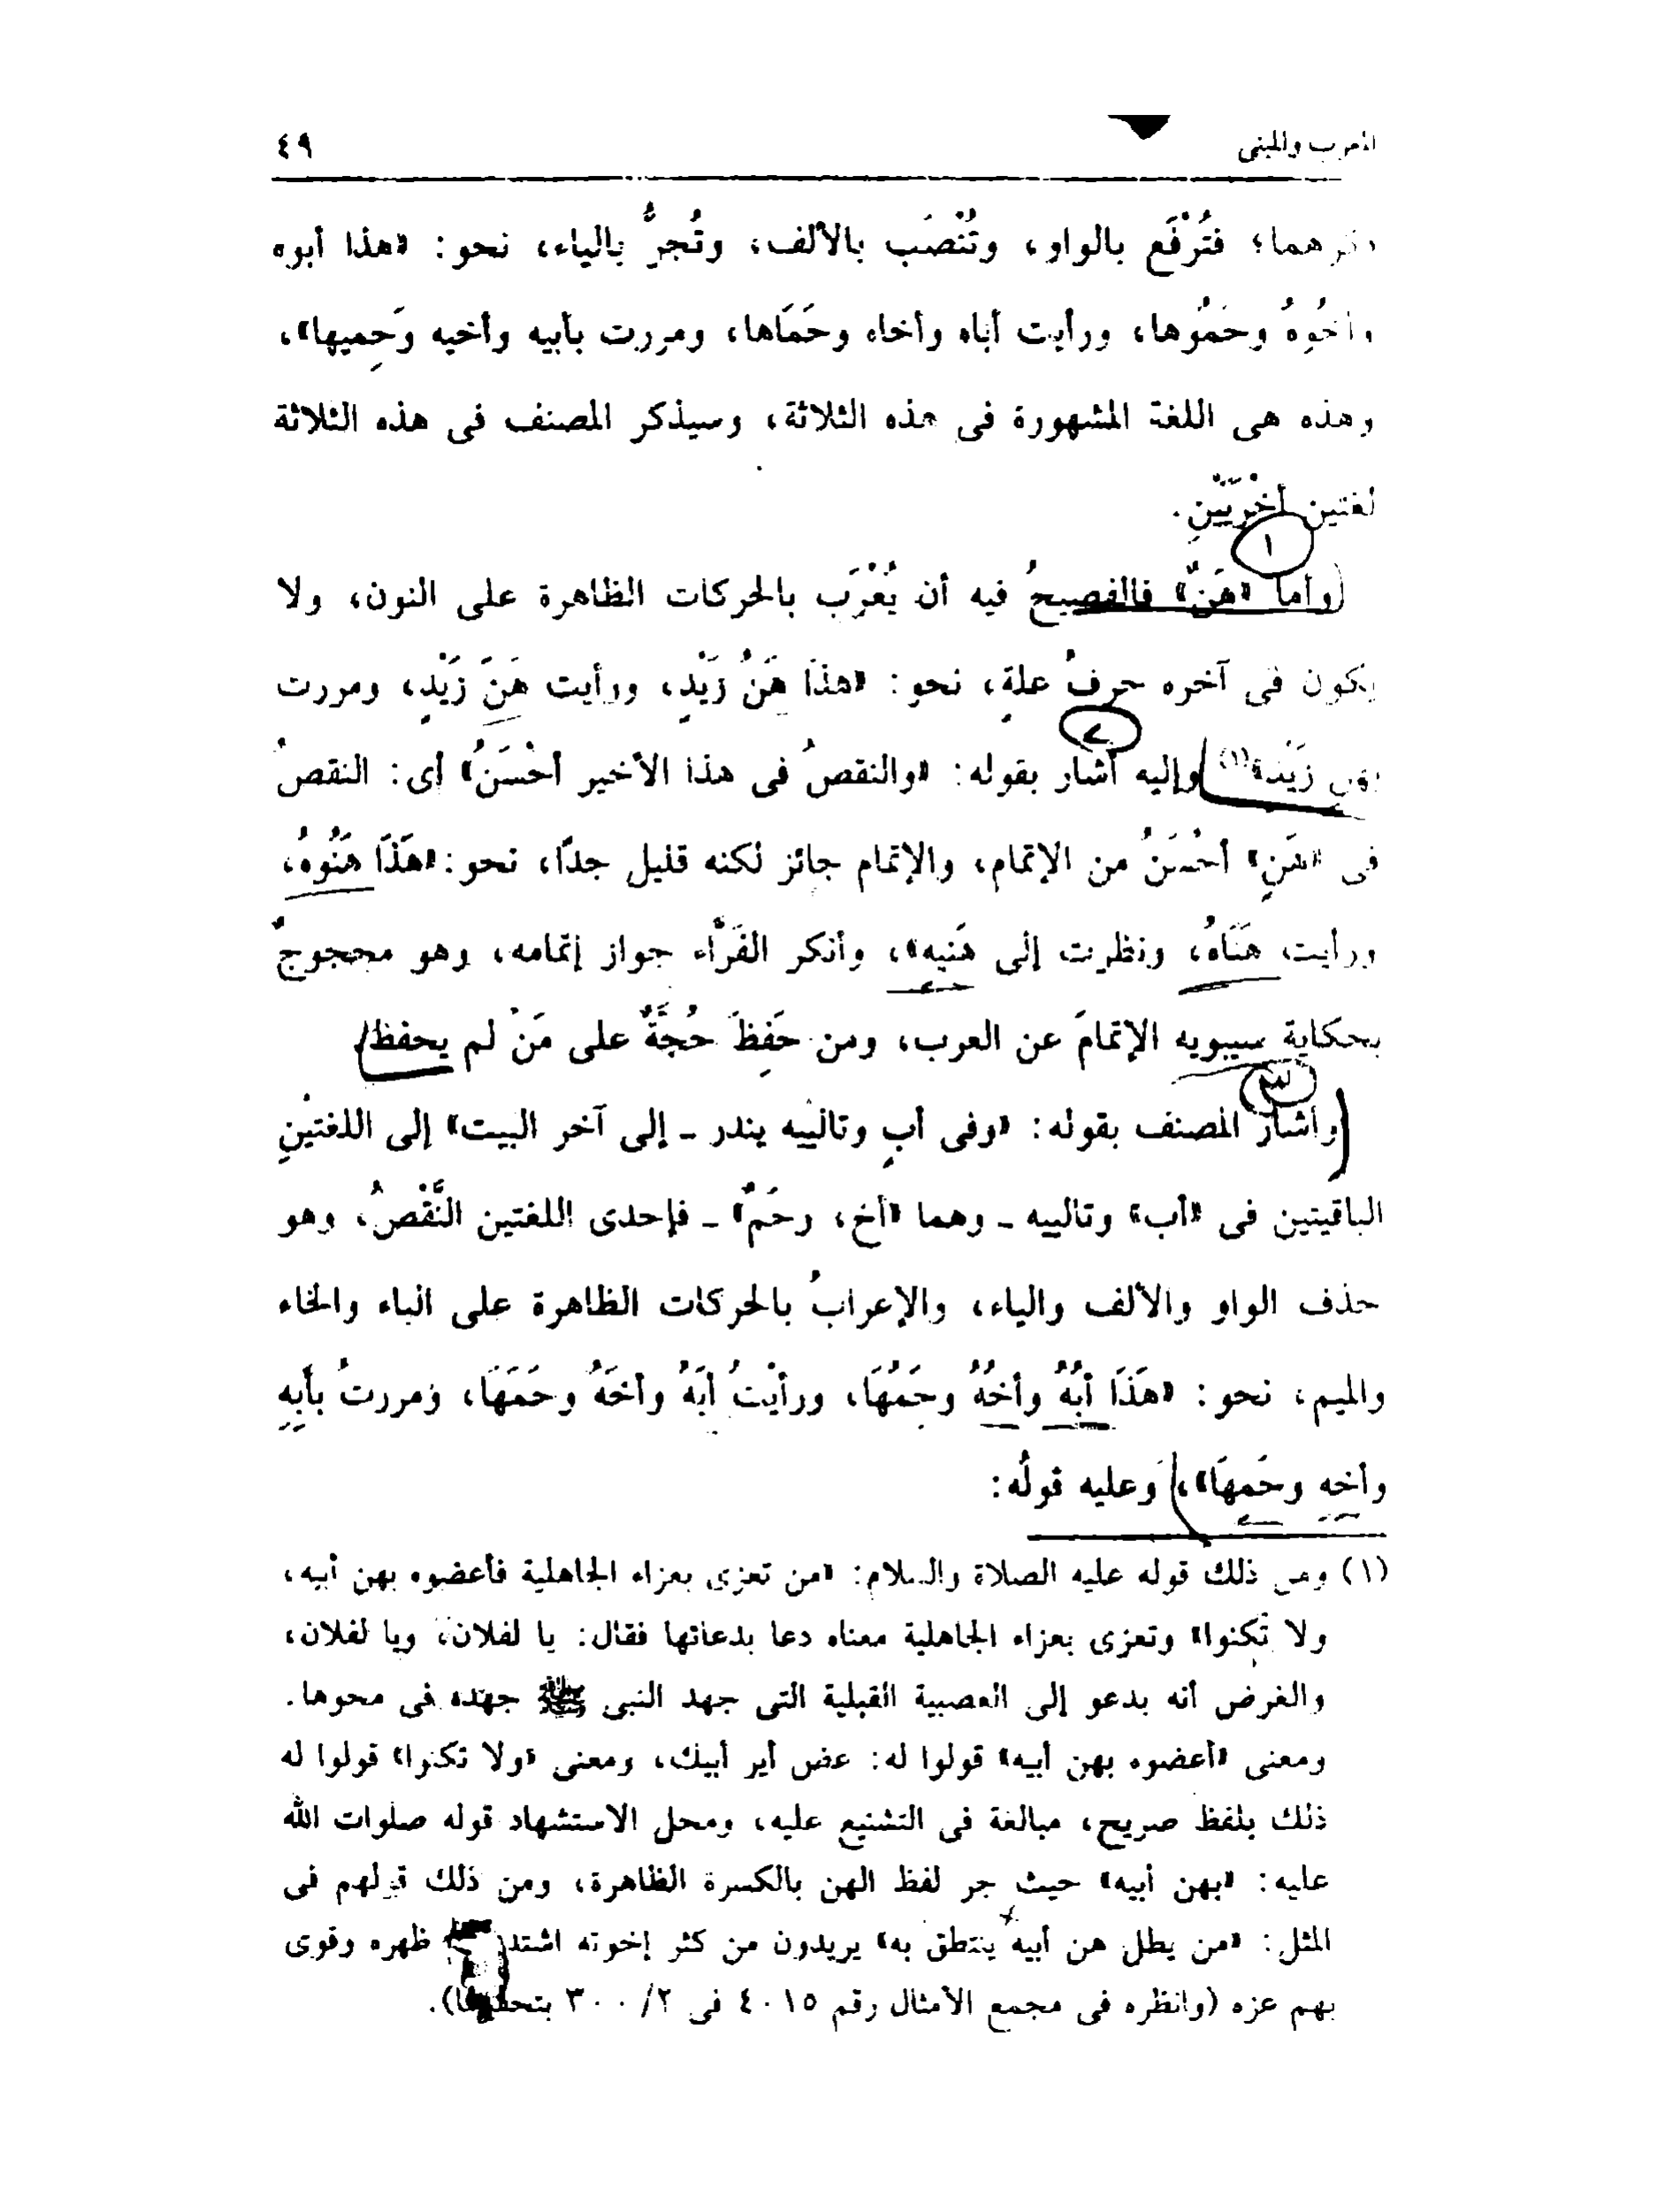 المعرب والمبنى ٤٩
ذكرهما؛ فتُرْفَع بالواو، وتُنْصَب بالألف، وتُجرُّ بالياء، نحو: «هذا أبوه
وأخُوهُ وحَمُوها، ورأيت أباه وأخاه وحَمَاها، ومررت بأبيه وأخيه وَحِميها»،
وهذه هى اللغة المشهورة فى هذه الثلاثة، وسيذكر المصنف فى هذه الثلاثة
لغتين أخْرَيَيْنِ.
١
(وأما «هَنٌ» فالفصيحُ فيه أن يُعْرَب بالحركات الظاهرة على النون، ولا
يكون فى آخره حرفُ علةٍ، نحو: «هذَا هَنُ زَيْدٍ، ورأيت هَنَ زَيْدٍ، ومررت
٢
بهن زَيْد»(١) وإليه أشار بقوله: «والنقصُ فى هذا الأخير أحْسَنُ» أى: النقصُ
فى «هَنٍ» أحْسَنُ من الإتمام، والإتمام جائز لكنه قليل جدًا، نحو: «هَذَا هَنُوهُ،
ورأيت هَنَاهُ، ونظرت إلى هَنيه»، وأنكر الفَرَّاء جواز إتمامه، وهو محجوجٌ
بحكاية سيبويه الإتمامَ عن العرب، ومن حَفِظَ حُجَّةٌ على مَنْ لم يحفظ)
٣
(وأشار المصنف بقوله: «وفى أبٍ وتالييه يندر ـ إلى آخر البيت» إلى اللغتَيْنِ
الباقيتين فى «أب» وتالييه ـ وهما «أخ، وحَمٌ» ـ فإحدى اللغتين النَّقْصُ، وهو
حذف الواو والألف والياء، والإعرابُ بالحركات الظاهرة على الباء والخاء
والميم، نحو: «هَذَا أبُهُ وأخُهُ وحَمُهَا، ورأيْتُ أبَهُ وأخَهُ وحَمَهَا، ومررتُ بأبِهِ
وأخِهِ وحَمِهَا»،) وعليه قولُه:
(١) ومن ذلك قوله عليه الصلاة والسلام: «من تعزى بعزاء الجاهلية فأعضوه بهن أبيه،
ولا تَكنوا» وتعزى بعزاء الجاهلية معناه دعا بدعائها فقال: يا لفلان، ويا لفلان،
والغرض أنه يدعو إلى العصبية القبلية التى جهد النبى ﷺ جهده فى محوها.
ومعنى «أعضوه بهن أبيه» قولوا له: عض أير أبيك، ومعنى «ولا تكنوا» قولوا له
ذلك بلفظ صريح، مبالغة فى التشنيع عليه، ومحل الاستشهاد قوله صلوات الله
عليه: «بهن أبيه» حيث جر لفظ الهن بالكسرة الظاهرة، ومن ذلك قولهم فى
المثل: «من يطل هن أبيه ينتطق به» يريدون من كثر إخوته اشتد ظهره وقوى
بهم عزه (وانظره فى مجمع الأمثال رقم ٤٠١٥ فى ٢/ ٣٠٠ بتحقيقنا).